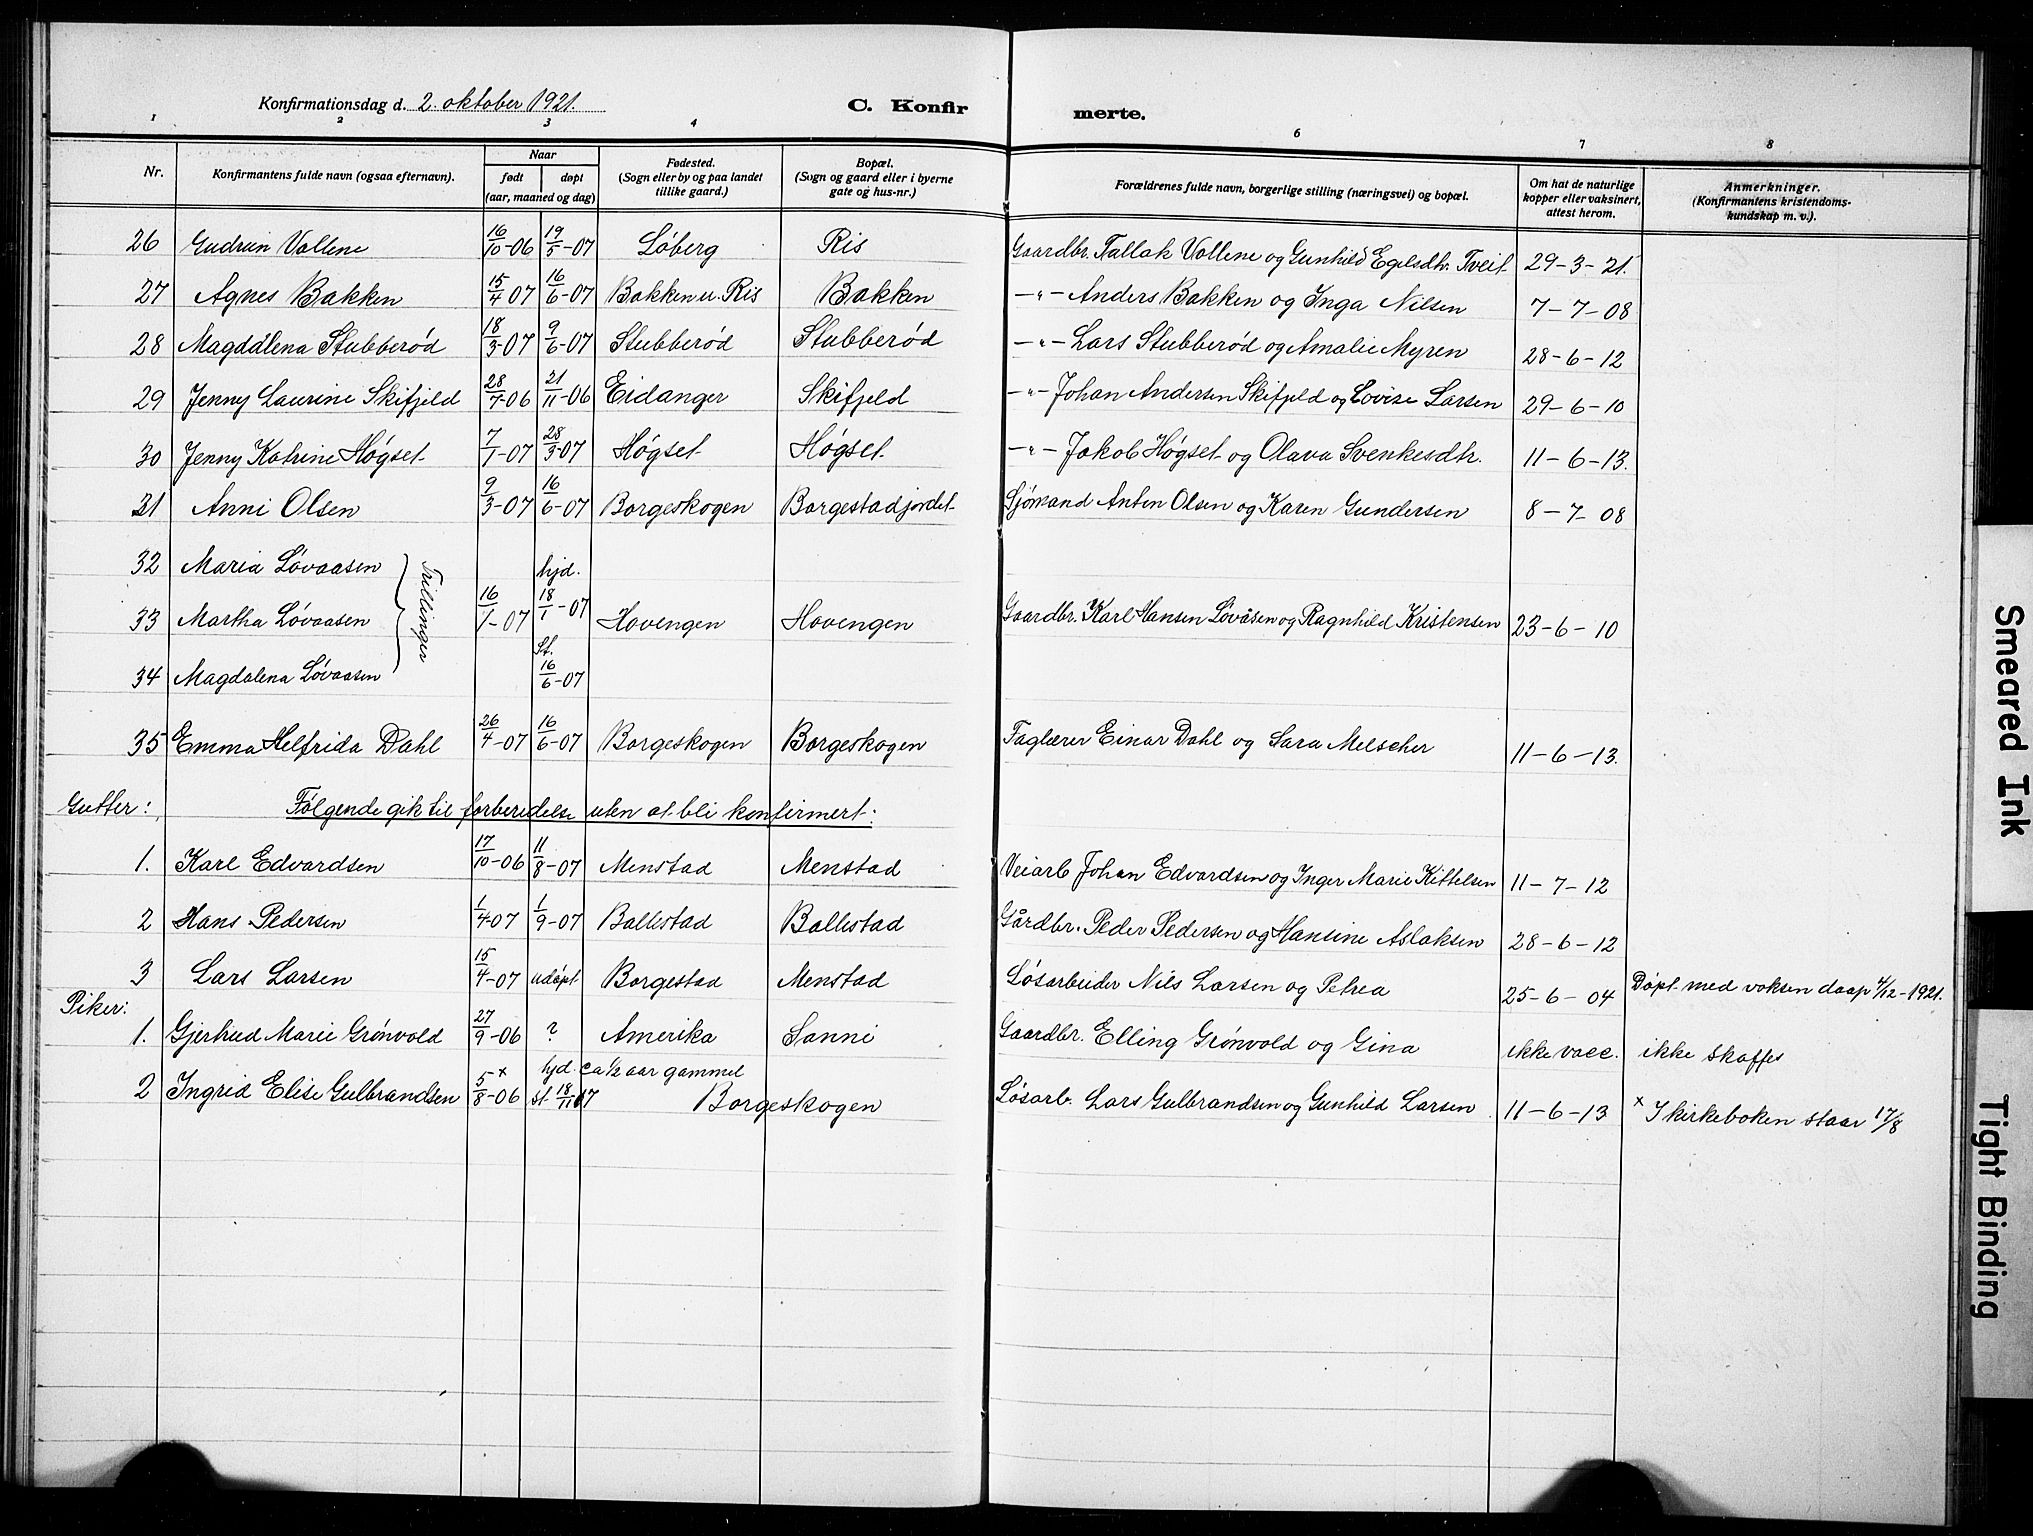 Konfirmationsdag d. 2. oktober 1921.
C. Konfir
merte.
1 2 3 4 6 7 8
Nr.
Konfirmantens fulde navn (ogsaa efternavn).
Naar
født
døpt
(aar, maaned og dag)
Fødested.
(Sogn eller by og paa landet
tillike gaard.)
Bopæl.
(Sogn og gaard eller i byerne
gate og hus-nr.)
Forældrenes fulde navn, borgerlige stilling (næringsvei) og bopæl.
Om hat de naturlige
kopper eller vaksinert,
attest herom.
Anmerkninger.
(Konfirmantens kristendoms-
kundskap m. v.).
26 Gudrun Vollene 16/10-06 19/5-07 Løberg Ris Gaardbr. Tallak Vollene og Gunhild Egelsdtr. Tveit 29-3-21.
27 Agnes Bakken 15/4 07 16/6-07 Bakken u. Ris Bakken -"- Anders Bakken og Inga Nilsen 7-7-08
28 Magdalena Stubberød 18/3-07 9/6-07 Stubberød Stubberød -"- Lars Stubberød og Amalie Myren 28-6-12
29 Jenny Laurine Skifjeld 28/7-06 21/11-06 Eidanger Skifjeld -"- Johan Andersen Skifjeld og Lovise Larsen 29-6-10
30 Jenny Katrine Høgset 7/1-07 28/3-07 Høgset Høgset -"- Jakob Høgset og Olava Svenkesdtr. 11-6-13.
31 Anni Olsen 9/3-07 16/6-07 Borgeskogen Borgestadjordet Sjømand Anton Olsen og Karen Gundersen 8-7-08
32 Maria Løvaasen hjd.
33 Martha Løvaasen Trillinger 16/1-07 18/1-07 Hovengen Hovengen Gaardbr. Karl Hansen Løvåsen og Ragnhild Kristensen 23-6-10
34 Magdalena Løvaasen St. 16/6-07
35 Emma Helfrida Dahl 26/4-07 16/6-07 Borgeskogen Borgeskogen Faglærer Einar Dahl og Sara Melscher 11-6-13.
Gutter: Følgende gik til forberedelse uten at bli konfirmert:
1. Karl Edvardsen 17/10-06 11/8-07 Menstad Menstad Veiarb Johan Edvardsen og Inger Marie Kittelsen 11-7-12
2 Hans Pedersen 1/4-07 1/9-07 Ballestad Ballestad Gårdbr. Peder Pedersen og Hansine Aslaksen 28-6-12
3 Lars Larsen 15/4-07 udøpt Borgestad Menstad Løsarbeider Nils Larsen og Petrea 25-6-04 Døpt med voksen daap 4/12-1921.
Piker:
1. Gjertrud Marie Grønvold 27/9-06 ? Amerika Sanni Gaardbr. Elling Grønvold og Gina ikke vacc. ikke skaffes
hjd. ca 1/2 aar gammel
2 Ingrid Elise Gulbrandsen 5/8-06 x st. 18/11 17 Borgeskogen Løsarb. Lars Gulbrandsen og Gunhild Larsen 11-6-13 x I kirkeboken staar 17/8
Smeared Ink
Tight Binding